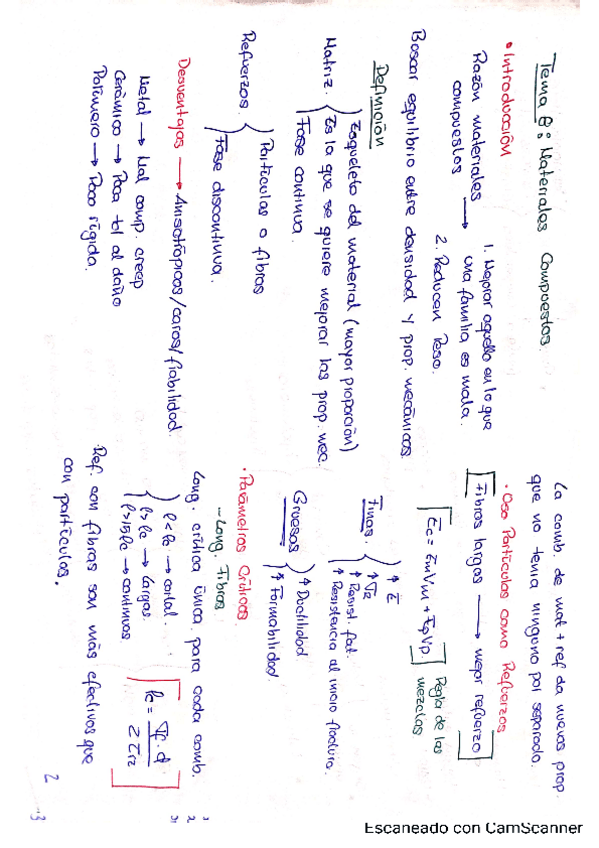 Tema 8: Materiales Compuestos.
• Introducción
Razón materiales compuestos → 1. Mejorar aquello en lo que
una familia es mala.
2. Reducen Peso.
Boscar equilibrio entre densidad y prop. mecánicas
Definición
Matriz. { Esqueleto del material (mayor proporción)
Es la que se quiere mejorar las prop. mec.
Fase continua.
Refuerzos. { Partículas o fibras
Fase discontinua.
Desventajas → Anisotrópicos/caros/fiabilidad.
Metal → Mal comp. creep
Cerámico → Poca tol al daño
Polímero → Poco rígida.
La comb. de mat + ref da nuevas prop.
que no tenia ninguno por separado.
• Uso Partículas como Refuerzos
Fibras largas → mejor refuerzo
Ec = EmVm + EpVp Regla de las
mezclas
Finas. { ↑ E
↑ σR
↑ Resist. fat.
↑ Resistencia al inicio fractura.
Gruesas { ↑ Ductilidad
↑ Formabilidad
• Parámetros Críticos
- Long. Fibras
Long. crítica única para cada comb.
l < lc → corta.
l > lc → largas
l > 15 lc → continuas
lc = σf · d / 2 τm
Ref. con fibras son más efectivos que
con partículas.
2
Escaneado con CamScanner